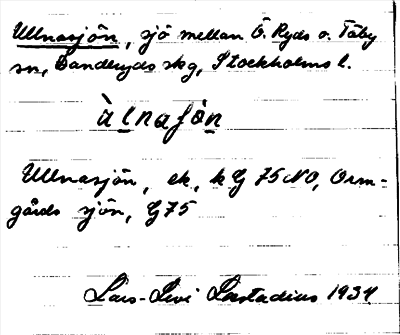 Ullnasjön, sjö mellan Ö. Ryds o. Täby
sn, Danderyds skg, Stockholms l.
Ullnasjön, ek, k G 75 NO, Orm-
gårds sjön, G 75
Lars-Levi Læstadius 1934